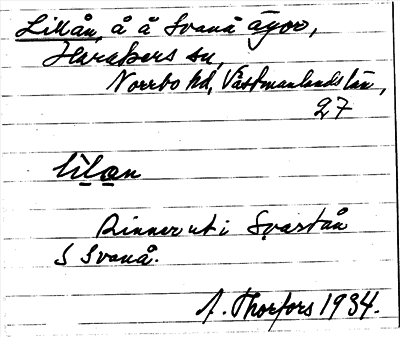 Lillån, å å Svanå ägor,
Harakers sn,
Norrbo hd, Västmanlands län,
27
lìlan
Rinner ut i Svartån
S Svanå.
A. Thorfors 1934.